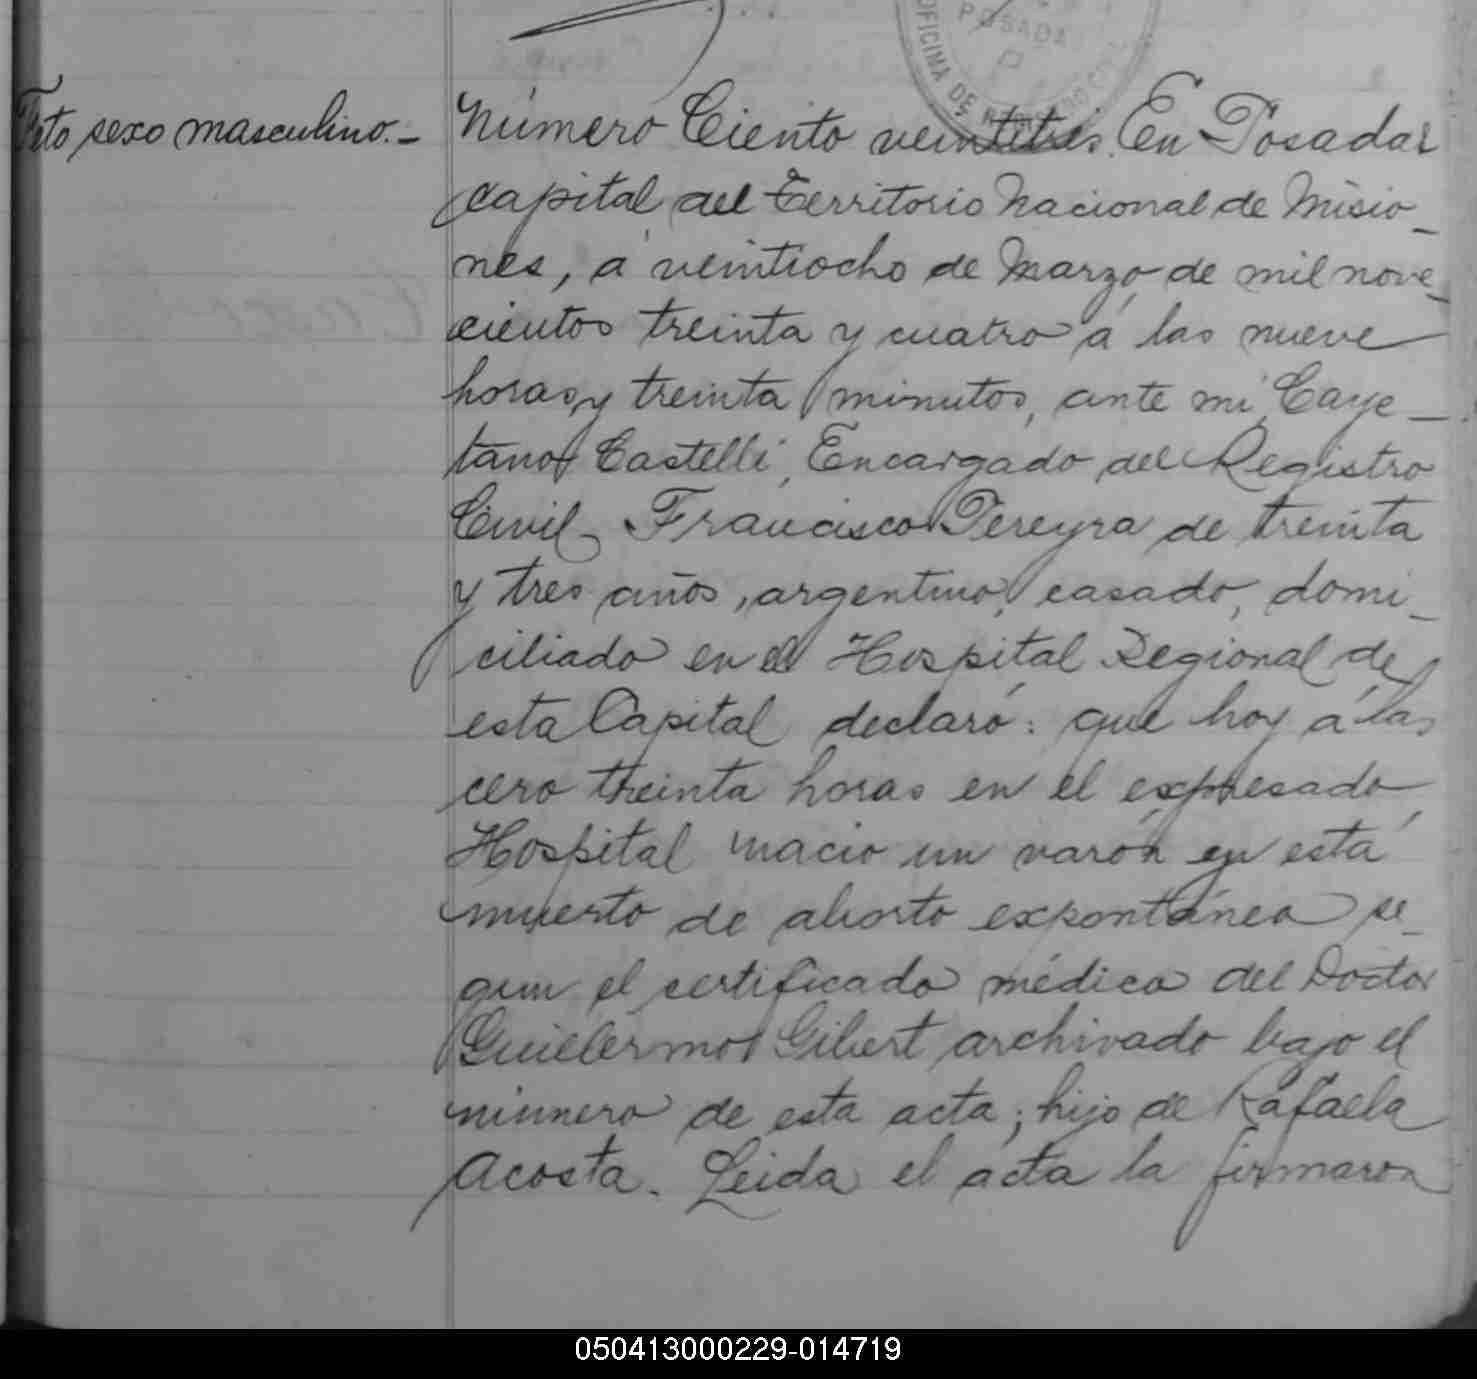 POSADA
OFICINA DE
Feto sexo masculino.-
Número Ciento veintetrés. En Posadas
capital del Territorio Nacional de Misio-
nes, á veintiocho de Marzo de mil nove-
cientos treinta y cuatro á las nueve
horas y treinta minutos, ante mi Caye-
tano Castelli, Encargado del Registro
Civil, Francisco Pereyra de treinta
y tres años, argentino, casado, domi-
ciliado en el Hospital Regional de
esta Capital declaró: que hoy á las
cero treinta horas en el expresado
Hospital nació un varón en está
muerto de aborto expontáneo se-
gun el certificado médico del Doctor
Guillermo Gibert archivado bajo el
número de esta acta; hijo de Rafaela
Acosta. Leida el acta la firmaron
050413000229-014719